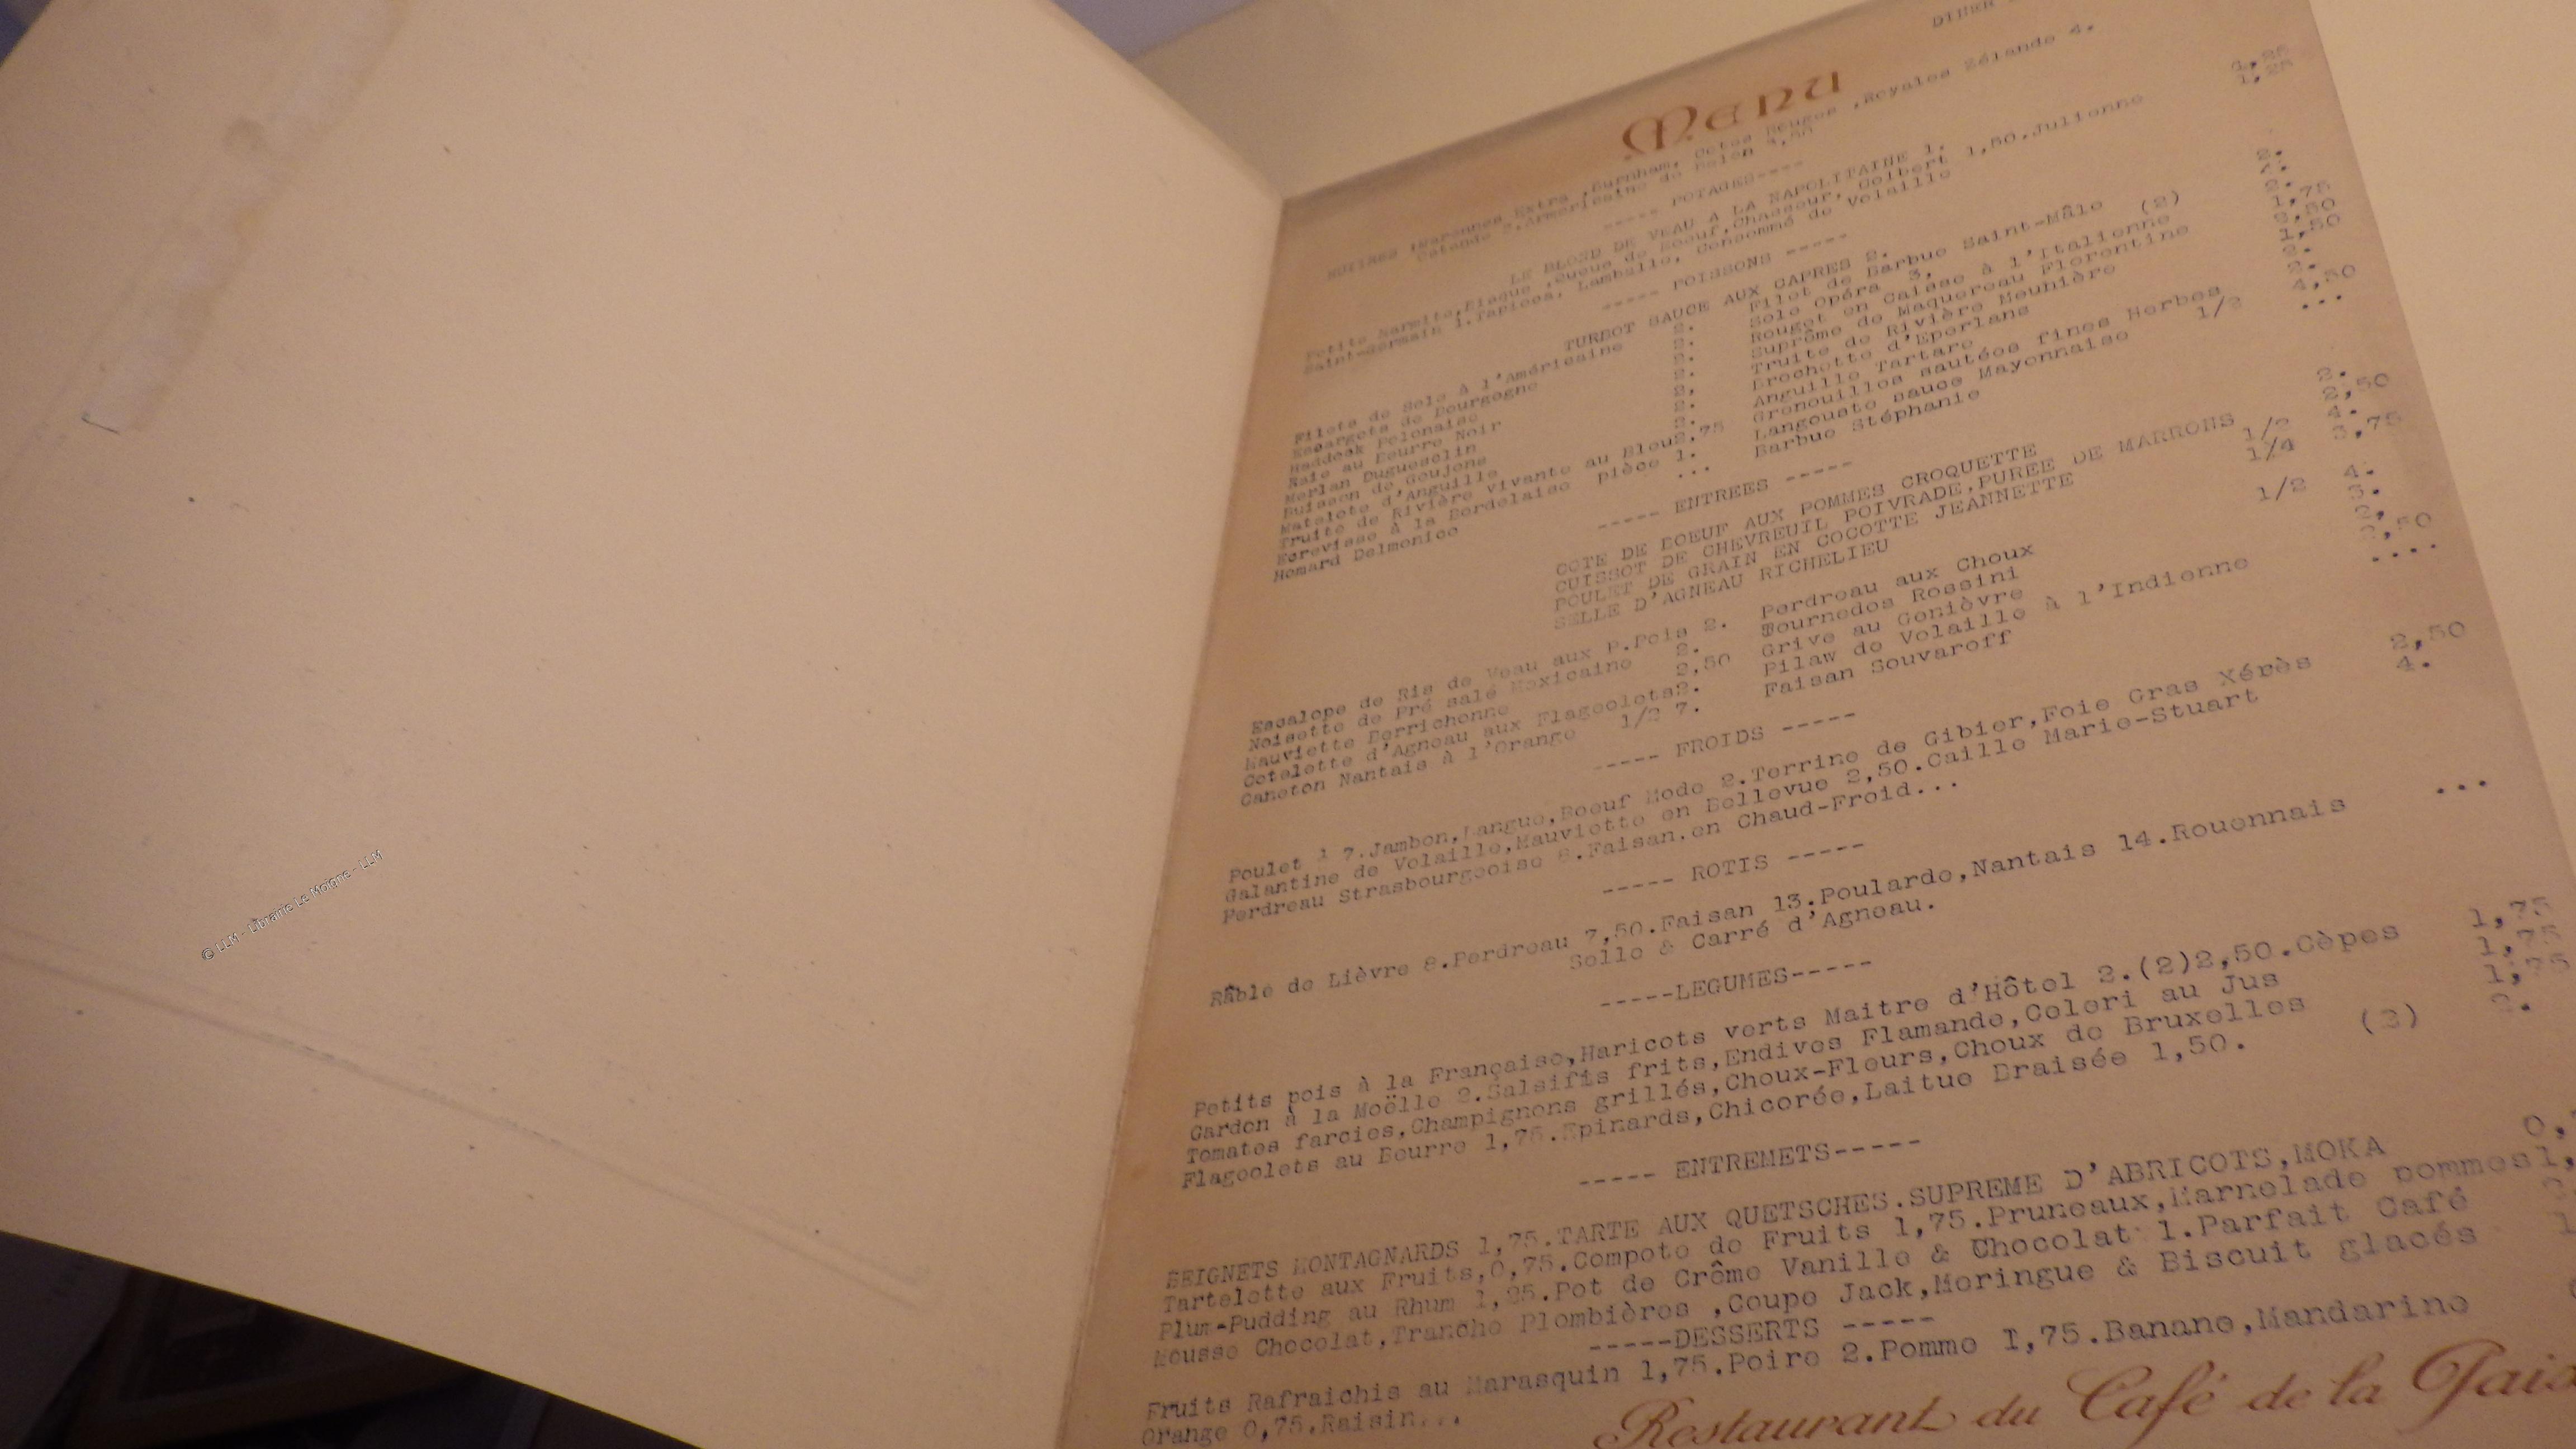 DINER
Menu
HUITRES :Marennes Extra ,Burnham, Cotes Rouges ,Royales Zélande 4.
Ostende 2.Armoricaine de Belon 4,50 1,25
----- POTAGES---- 1,25
LE BLOND DE VEAU A LA NAPOLITAINE 1.
Petite Marmite,Bisque ,Queue de Boeuf,Chasseur, Colbert 1,50.Julienne
Saint-Germain 1.Tapioca, Lamballe, Consommé de Volaille
----- POISSONS -----
TURBOT SAUCE AUX CAPRES 2.
Filets de Sole à l'Américaine 2. Filet de Barbue Saint-Mâlo 2.
Escargots de Bourgogne 2. Sole Opéra 3. (2)
Haddock Polonaise 2. Rouget en Caisse à l'Italienne 2.
Raie au Beurre Noir 2. Suprême de Maquereau Florentine 1,75
Merlan Duguesclin 2, Truite de Rivière Meunière
Buisson de Goujons 2. Brochette d'Eperlans 1,50
Matelote d'Anguille 2. Anguille Tartare 2.
Truite de Rivière vivante au Bleu2.75 Grenouilles sautées fines Herbes 2.
Ecrevisse à la Bordelaise pièce 1. Langouste sauce Mayonnaise 1/2 4,50
Homard Delmonico ... Barbue Stéphanie ...
----- ENTREES -----
COTE DE BOEUF AUX POMMES CROQUETTE 2.
CUISSOT DE CHEVREUIL POIVRADE,PUREE DE MARRONS 2,50
POULET DE GRAIN EN COCOTTE JEANNETTE 1/2 4.
SELLE D'AGNEAU RICHELIEU 1/4 3,75
Escalope de Ris de Veau aux P.Pois 2. Perdreau aux Choux 1/2 4.
Noisette de Pré salé Mexicaine 2. Tournedos Rossini 3.
Mauviette Berrichonne 2,50 Grive au Genièvre 2,
Cotelette d'Agneau aux Flageolets2. Pilaw de Volaille à l'Indienne 2,50
Caneton Nantais à l'Orange 1/2 7. Faisan Souvaroff ....
----- FROIDS -----
Poulet 1 7.Jambon,Langue,Boeuf Mode 2.Terrine de Gibier,Foie Gras Xérès 2,50
Galantine de Volaille,Mauviette en Bellevue 2,50.Caille Marie-Stuart 4.
Perdreau Strasbourgeoise 8.Faisan.en Chaud-Froid...
----- ROTIS -----
Râble de Lièvre 8.Perdreau 7,50.Faisan 13.Poularde,Nantais 14.Rouennais ...
Selle & Carré d'Agneau.
-----LEGUMES-----
Petits pois à la Française,Haricots verts Maitre d'Hôtel 2.(2)2,50.Cèpes 1,75
Cardon à la Moëlle 2.Salsifis frits,Endives Flamande,Celeri au Jus 1,75
Tomates farcies,Champignons grillés,Choux-Fleurs,Choux de Bruxelles 1,75
Flageolets au Beurre 1,75.Epinards,Chicorée,Laitue Braisée 1,50. (2) 2.
----- ENTREMETS-----
BEIGNETS MONTAGNARDS 1,75.TARTE AUX QUETSCHES.SUPREME D'ABRICOTS,MOKA 0,
Tartelette aux Fruits,0,75.Compote de Fruits 1,75.Pruneaux,Marmelade pommes1,
Plum-Pudding au Rhum 1,25.Pot de Crême Vanille & Chocolat 1.Parfait Café
Mousse Chocolat,Tranche Plombières ,Coupe Jack,Meringue & Biscuit glacés
-----DESSERTS -----
Fruits Rafraichis au Marasquin 1,75.Poire 2.Pomme 1,75.Banane,Mandarine
Orange 0,75.Raisin...
Restaurant du Café de la Paix
© LLM - Librairie Le Moigne - LLM